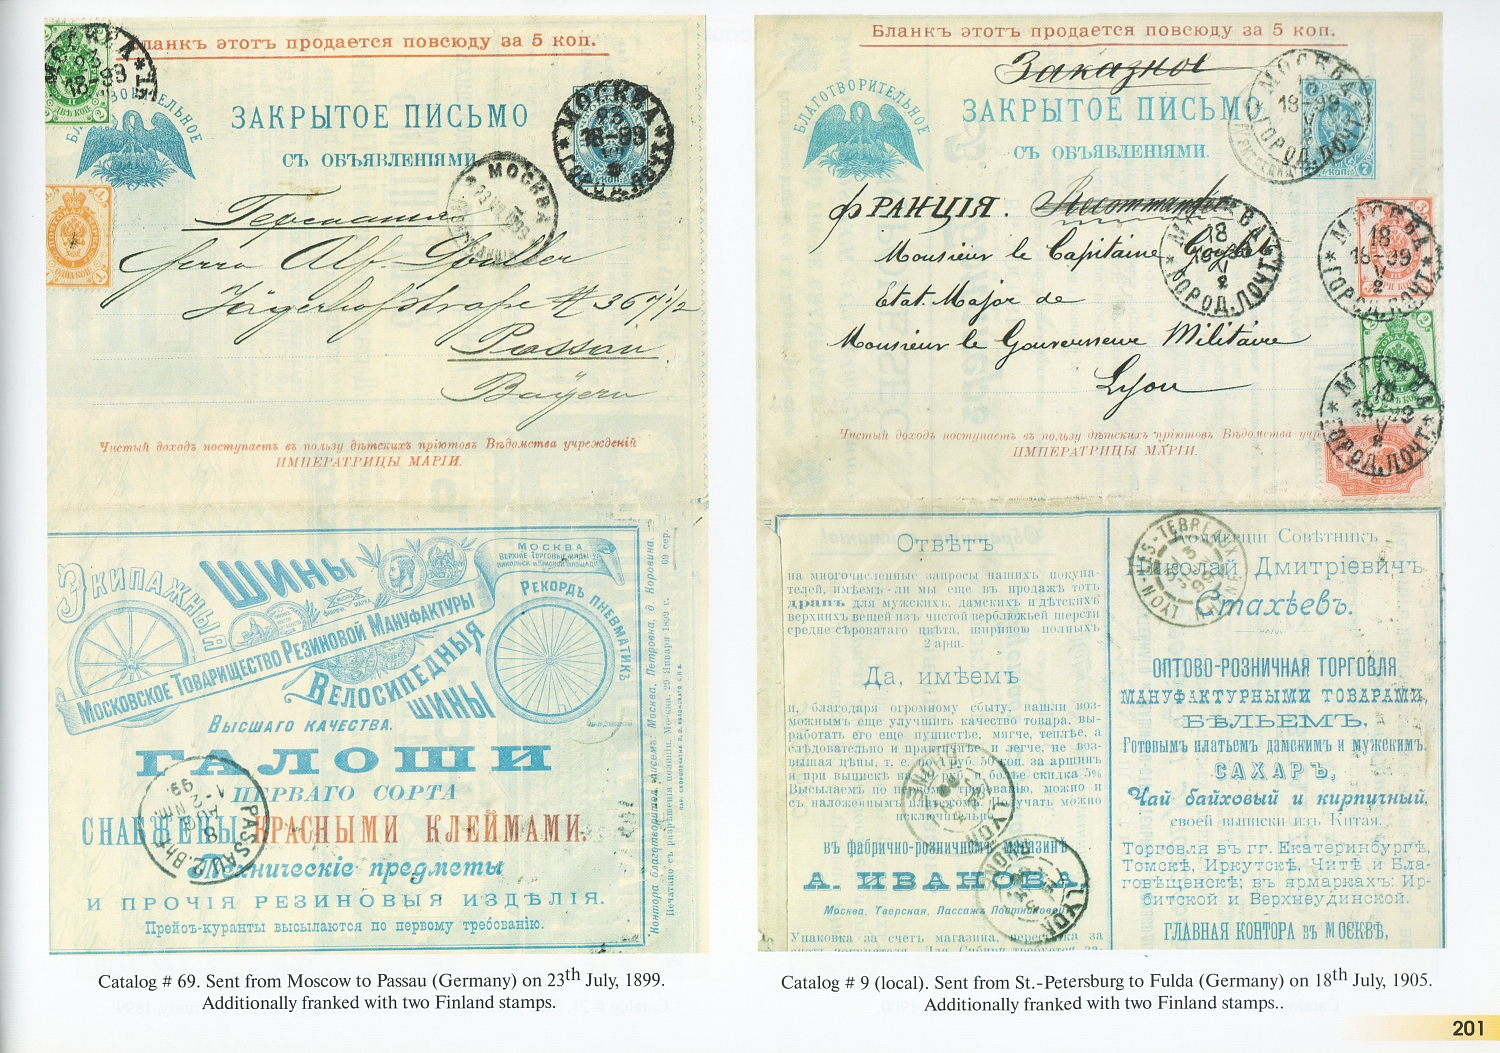 Бланкъ этотъ продается повсюду за 5 коп.
БЛАГОТВОРИТЕЛЬНОЕ
ЗАКРЫТОЕ ПИСЬМО
СЪ ОБЪЯВЛЕНІЯМИ
МОСКВА
18-99
ГОРОД. ПОЧТ.
МОСКВА
Германия
Herrn Alf.
Jägerhofstrasse № 367 1/2
Passau
Bayern
Чистый доходъ поступаетъ въ пользу дѣтскихъ пріютовъ Вѣдомства учрежденій
ИМПЕРАТРИЦЫ МАРІИ.
Экипажныя
Шины
МОСКВА
Верхніе Торговые ряды
Рекордъ Пневматикъ
Московское Товарищество Резиновой Мануфактуры
Велосипедныя
шины
Высшаго качества.
ГАЛОШИ
ПЕРВАГО СОРТА
СНАБЖЕНЫ КРАСНЫМИ КЛЕЙМАМИ.
Техническіе предметы
И ПРОЧІЯ РЕЗИНОВЫЯ ИЗДѢЛІЯ.
Прейсъ-куранты высылаются по первому требованію.
Контора благотворител. писемъ: Москва, Петровка, д. Коровина.
Печатано съ разрѣшенія полиціи. Москва, 29 Января 1899 г. 69 сер.
PASSAU 2. Bhf.
Catalog # 69. Sent from Moscow to Passau (Germany) on 23th July, 1899.
Additionally franked with two Finland stamps.
Бланкъ этотъ продается повсюду за 5 коп.
Заказное
БЛАГОТВОРИТЕЛЬНОЕ
ЗАКРЫТОЕ ПИСЬМО
СЪ ОБЪЯВЛЕНІЯМИ.
МОСКВА
18
18-99
V
2
ГОРОД. ПОЧТ.
ФРАНЦІЯ.
Monsieur le Capitaine
Etat. Major de
Monsieur le Gouverneur Militaire
Lyon
Чистый доходъ поступаетъ въ пользу дѣтскихъ пріютовъ Вѣдомства
ИМПЕРАТРИЦЫ МАРІИ.
Отвѣтъ
на многочисленные запросы нашихъ покупа-
телей, имѣем-ли мы еще въ продажѣ тотъ
драпъ для мужскихъ, дамскихъ и дѣтскихъ
верхнихъ вещей изъ чистой верблюжьей шерсти
средне-сѣроватаго цвѣта, шириною полныхъ
2 арш.
Да, имѣемъ
и, благодаря огромному сбыту, нашли воз-
можнымъ еще улучшить качество товара, вы-
работать его еще пушистѣе, мягче, теплѣе, а
слѣдовательно и практичнѣе и легче, не воз-
вышая цѣны, т. е. руб. 50 коп. за аршинъ
и при выпискѣ болѣе скидка 5%
Высылаемъ по требованію, можно и
съ наложеннымъ платежомъ. получать можно
исключительно
въ фабрично-розничномъ магазинѣ
А. ИВАНОВА
Москва, Тверская, Пассажъ Постникова
Упаковка за счетъ магазина, пересылка за
LYON-LES-TERREAUX
LYON
RHONE
Коммерціи Совѣтникъ
Николай Дмитріевичъ
Стахѣевъ.
ОПТОВО-РОЗНИЧНАЯ ТОРГОВЛЯ
МАНУФАКТУРНЫМИ ТОВАРАМИ,
БѢЛЬЕМЪ,
Готовымъ платьемъ дамскимъ и мужскимъ.
САХАРЪ,
Чай байховый и кирпичный,
своей выписки изъ Китая.
Торговля въ гг. Екатеринбургѣ,
Томскѣ, Иркутскѣ, Читѣ и Бла-
говѣщенскѣ; въ ярмаркахъ: Ир-
битской и Верхнеудинской.
ГЛАВНАЯ КОНТОРА въ МОСКВѢ,
Catalog # 9 (local). Sent from St.-Petersburg to Fulda (Germany) on 18th July, 1905.
Additionally franked with two Finland stamps..
201